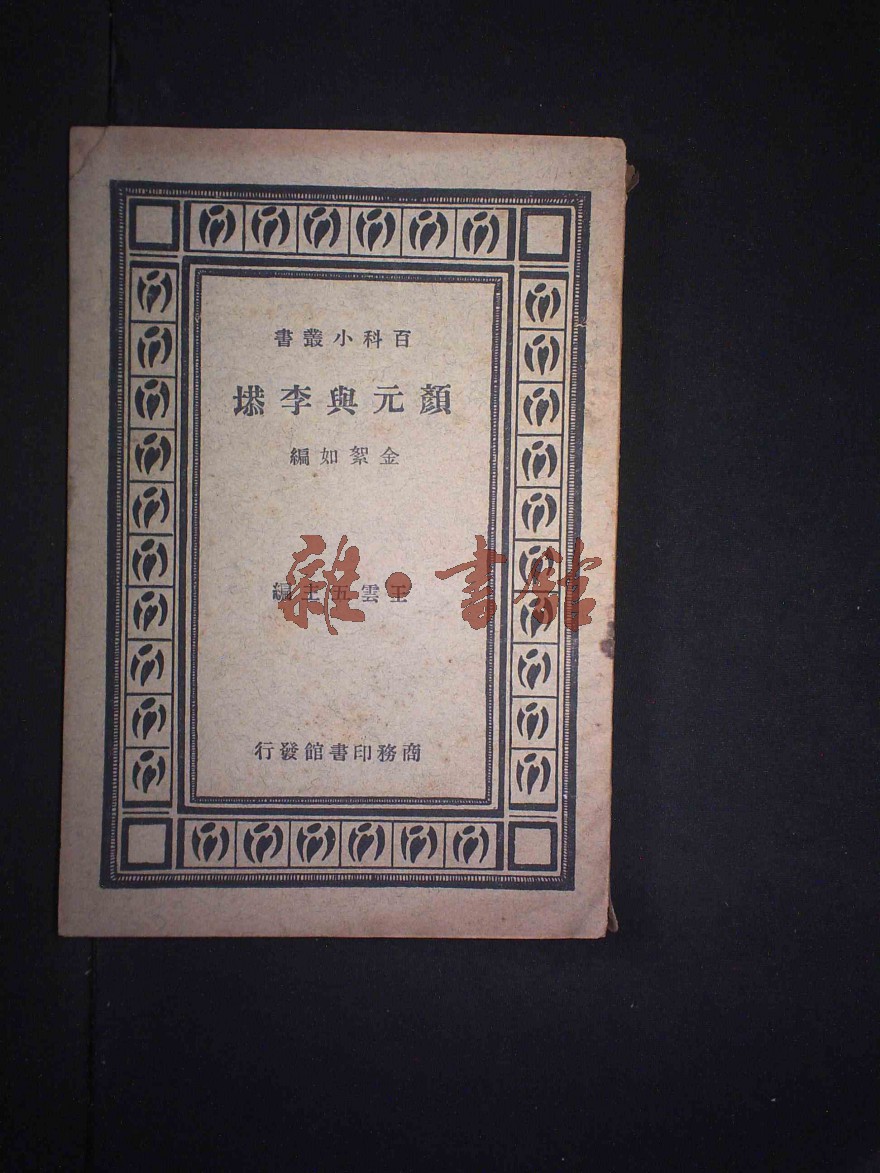 百科小叢書
顏元與李塨
金絮如編
王雲五主編
雜·書館
商務印書館發行